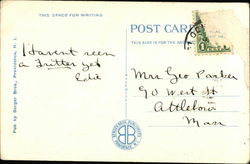 THIS SPACE FOR WRITING
I Havent seen
a Fritter yet
Edie
Pub by Berger Bros., Providence, R. I.
POST CARD
THIS SIDE IS FOR THE ADDRESS
Mrs Geo Parker
90 West St
Attleboro
Mass
BB